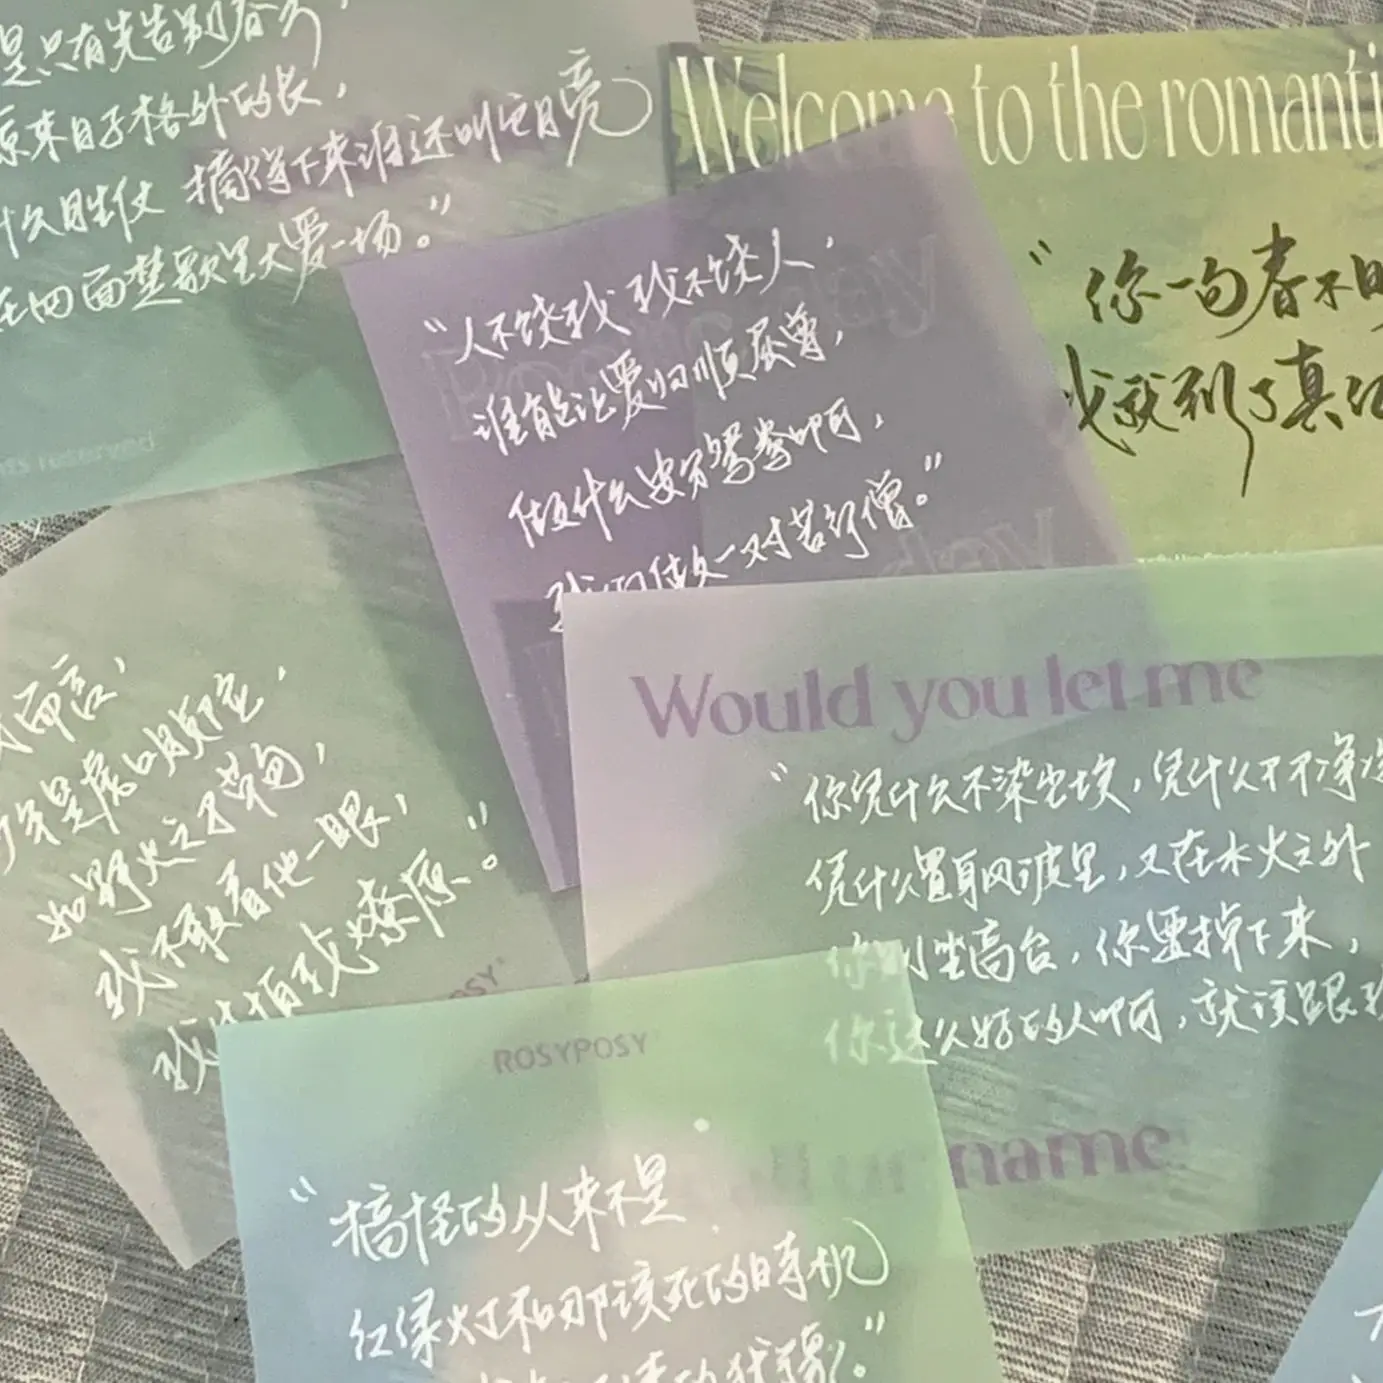 是只有先告别春天，
原来日子格外的长，
什么胜仗 摘得下来谁还叫它月亮
在四面楚歌里大爱一场。”
Welcome to the romanti
“你一句春不
我就到了真
“人不饶我 我不饶人，
谁能让爱归顺屈尊，
做什么要别鸳鸯啊，
我们做一对苦行僧。”
而言，
如野火之于草甸，
我不敢看他一眼，
燎原。”
Would you let me
“你凭什么不染尘埃，凭什么干干净净
凭什么置身风波里，又在水火之外
你别坐高台，你要掉下来，
你这么好的人啊，就该跟我
name
ROSYPOSY
“搞怪的从来不是
红绿灯和那该死的时机
的犹豫。”